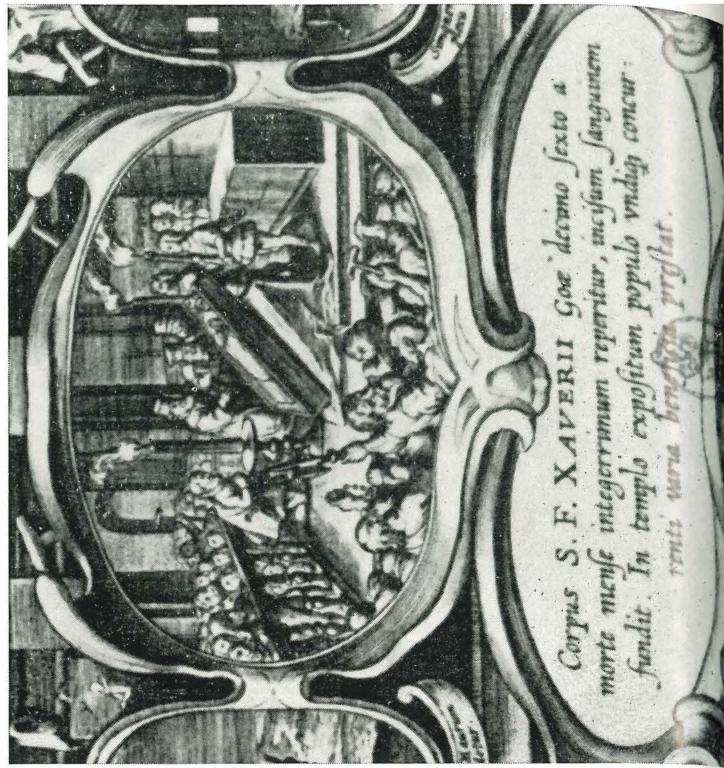 Corpus S. F. XAVERII Goæ decimo sexto a
morte mense integerrimum reperitur, incisum sanguinem
fundit. In templo expositum populo vndiq; concur-
renti varia beneficia prestat.